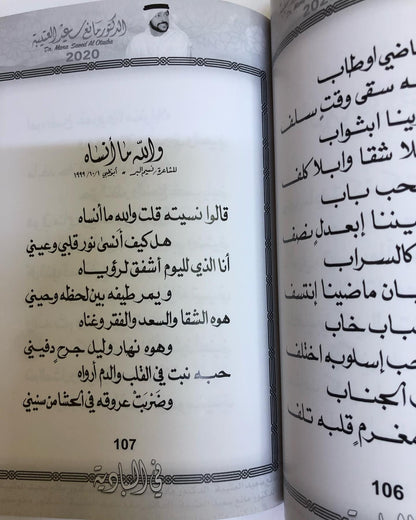 الدكتور مانع سعيد العتيبة
Dr. Mana Saeed Al Otaiba
2020
والله ما أنساه
للشاعرة نسيم البر * أبوظبي ١٩٩٩/١٠/١
قالوا نسيته قلت والله ما أنساه
هل كيف أنسى نور قلبي وعيني
أنا الذي لليوم أشفق لرؤياه
ويمر طيفه بين لحظه وحيني
هوه الشقا والسعد والفقر وغناه
وهوه نهار وليل جرح دفيني
حبه نبت في القلب والدم أرواه
وضربت عروقه في الحشا من سنيني
107
في البادية
ماضي اوطاب
ه سقى وقت سلف
دينا ابثواب
لا شقا وابلا كلف
حب باب
ييننا إبعدل بنصف
كالسراب
ان ماضينا إنتسف
باب خاب
حب إسلوبه اختلف
الجناب
مغرم قلبه تلف
106